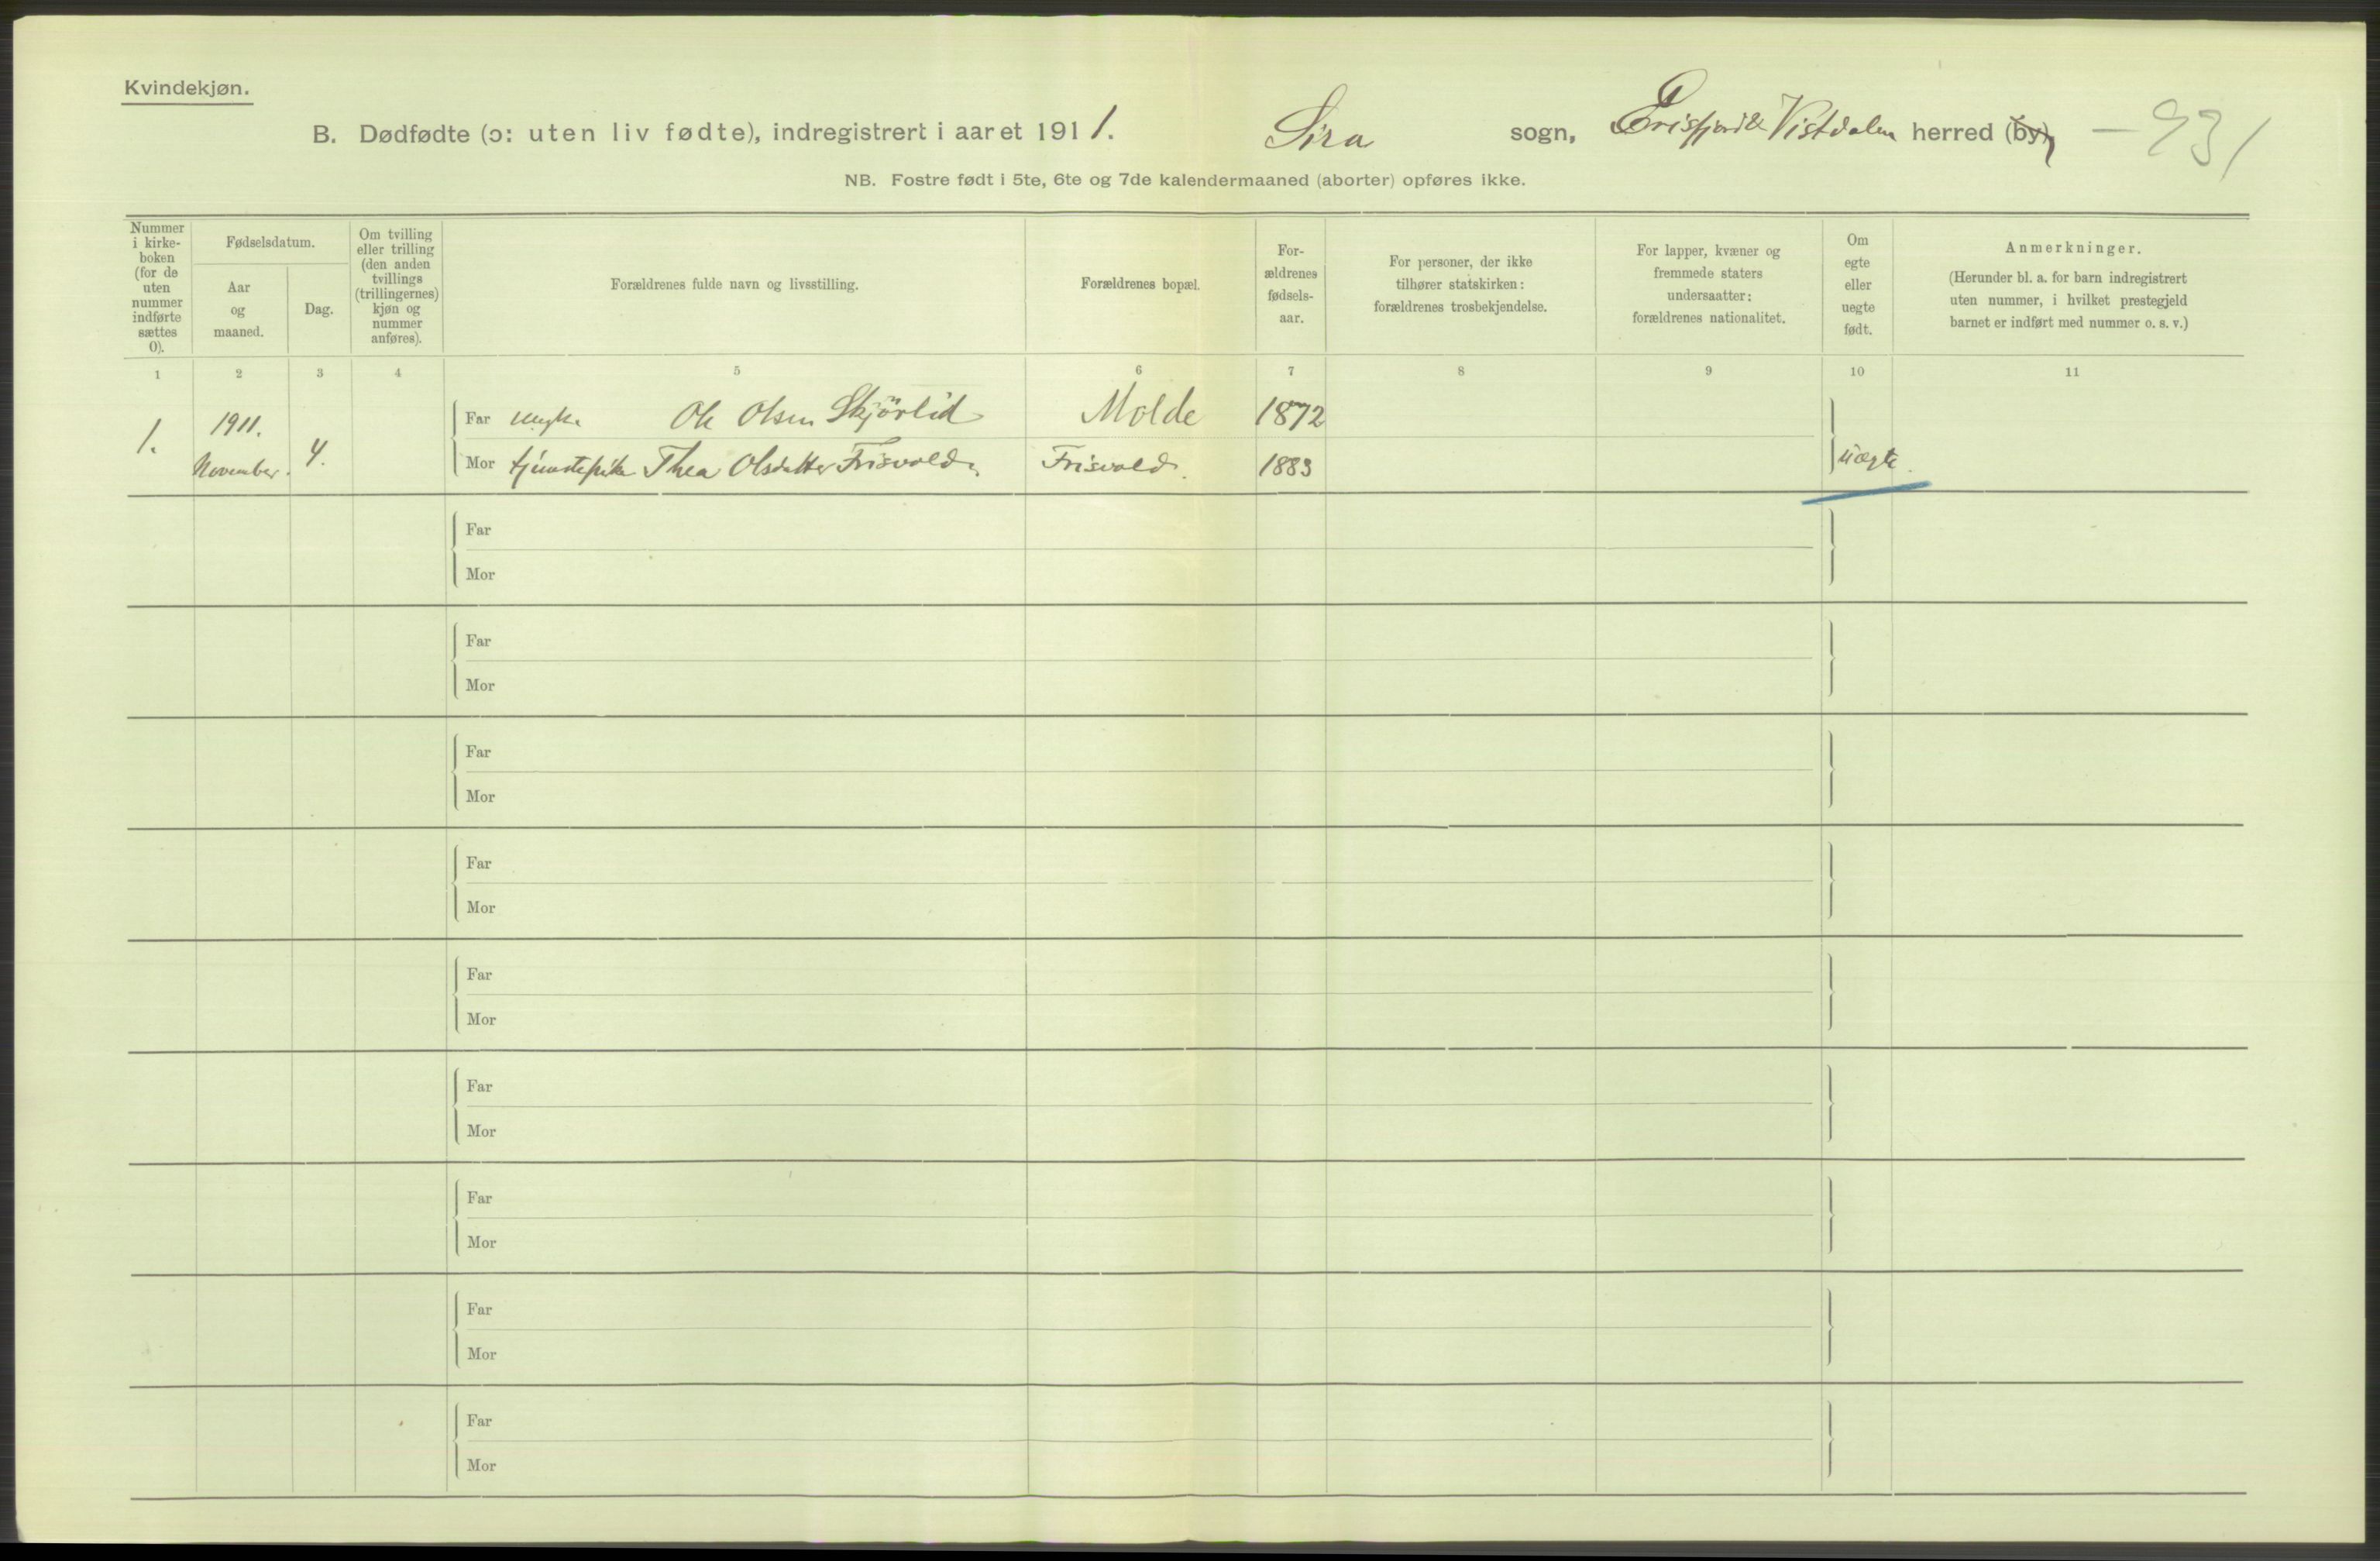 Kvindekjøn.
B. Dødfødte (ɔ: uten liv fødte), indregistrert i aaret 1911. Sira sogn, Erisfjord & Vistdalen herred (by), — 931
NB. Fostre født i 5te, 6te og 7de kalendermaaned (aborter) opføres ikke.
Nummer i kirke-boken (for de uten nummer indførte sættes 0).
Fødselsdatum.
Aar og maaned.
Dag.
Om tvilling eller trilling (den anden tvillings (trillingernes) kjøn og nummer anføres).
Forældrenes fulde navn og livsstilling.
Forældrenes bopæl.
For-ældrenes fødsels-aar.
For personer, der ikke tilhører statskirken: forældrenes trosbekjendelse.
For lapper, kvæner og fremmede staters undersaatter: forældrenes nationalitet.
Om egte eller uegte født.
Anmerkninger.
(Herunder bl. a. for barn indregistrert uten nummer, i hvilket prestegjeld barnet er indført med nummer o. s. v.)
1 2 3 4 5 6 7 8 9 10 11
1. 1911. November. 4.
Far Ole Olsen Skjörlid Molde 1872
Mor tjenestepike Thea Olsdatter Frisvold. Frisvold. 1883 uægte.
Far
Mor
Far
Mor
Far
Mor
Far
Mor
Far
Mor
Far
Mor
Far
Mor
Far
Mor
Far
Mor